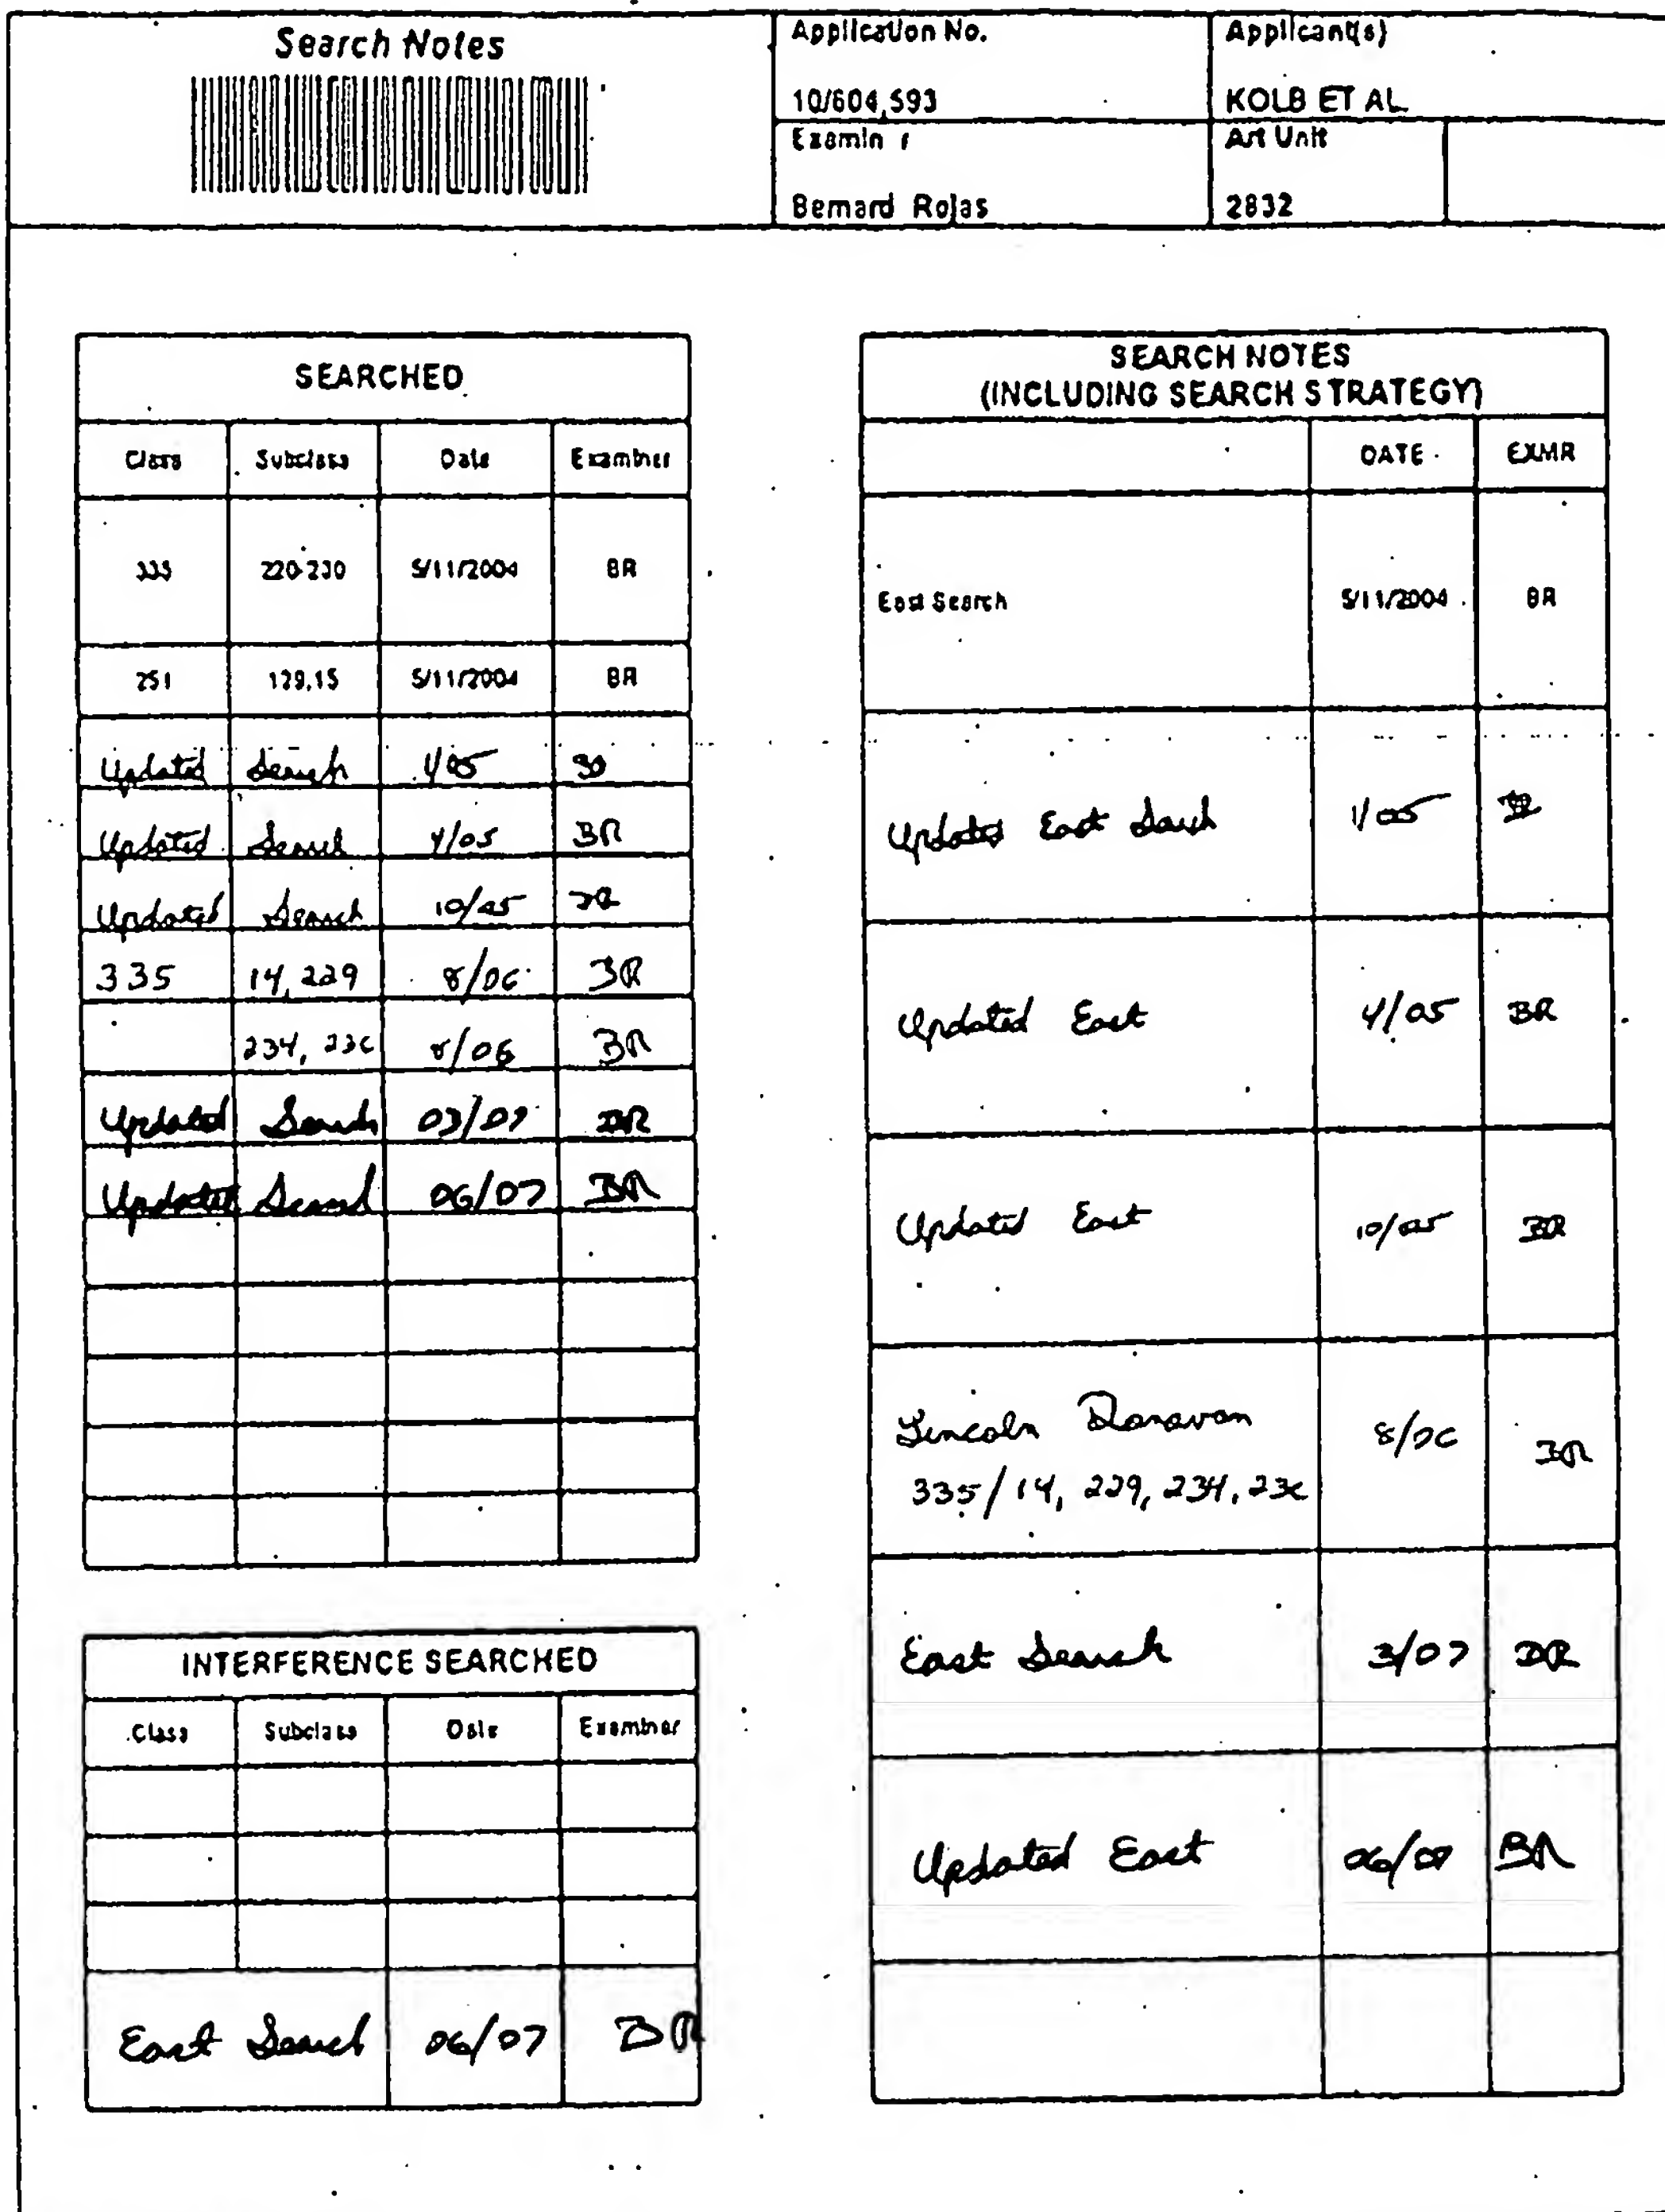 Search Notes
Application No.
Applicant(s)
10/604,593
KOLB ET AL.
Examin r
Art Unit
Bernard Rojas
2832
SEARCHED
Class Subclass Date Examiner
335 220-230 5/11/2004 BR
251 129.15 5/11/2004 BR
Updated Search 1/05 BR
Updated Search 4/05 BR
Updated Search 10/05 BR
335 14, 229 8/06 BR
234, 236 8/06 BR
Updated Search 03/07 BR
Updated Search 06/07 BR
INTERFERENCE SEARCHED
Class Subclass Date Examiner
East Search 06/07 BR
SEARCH NOTES
(INCLUDING SEARCH STRATEGY)
DATE EXMR
East Search 5/11/2004 BR
Updated East Search 1/05 BR
Updated East 4/05 BR
Updated East 10/05 BR
Lincoln Donovan 8/06 BR
335/14, 229, 234, 236
East Search 3/07 BR
Updated East 06/07 BR